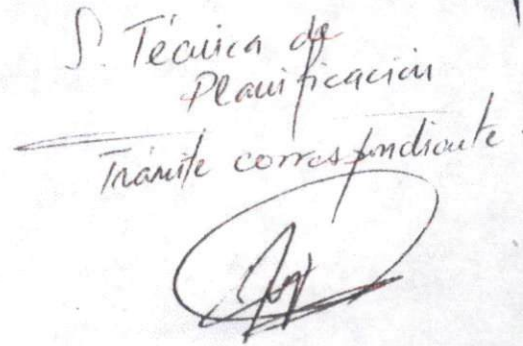 S. Técnica de
Planificación
Trámite correspondiente.